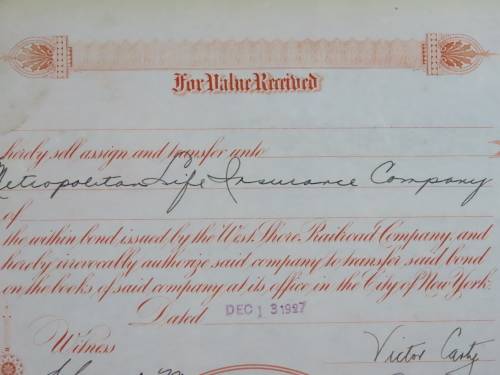 For Value Received
hereby sell assign and transfer unto
Metropolitan Life Insurance Company
of
the within bond issued by the West Shore Railroad Company, and
hereby irrevocably authorize said company to transfer said bond
on the books of said company at its office in the City of New York.
Dated DEC 13 1927
Witness Victor